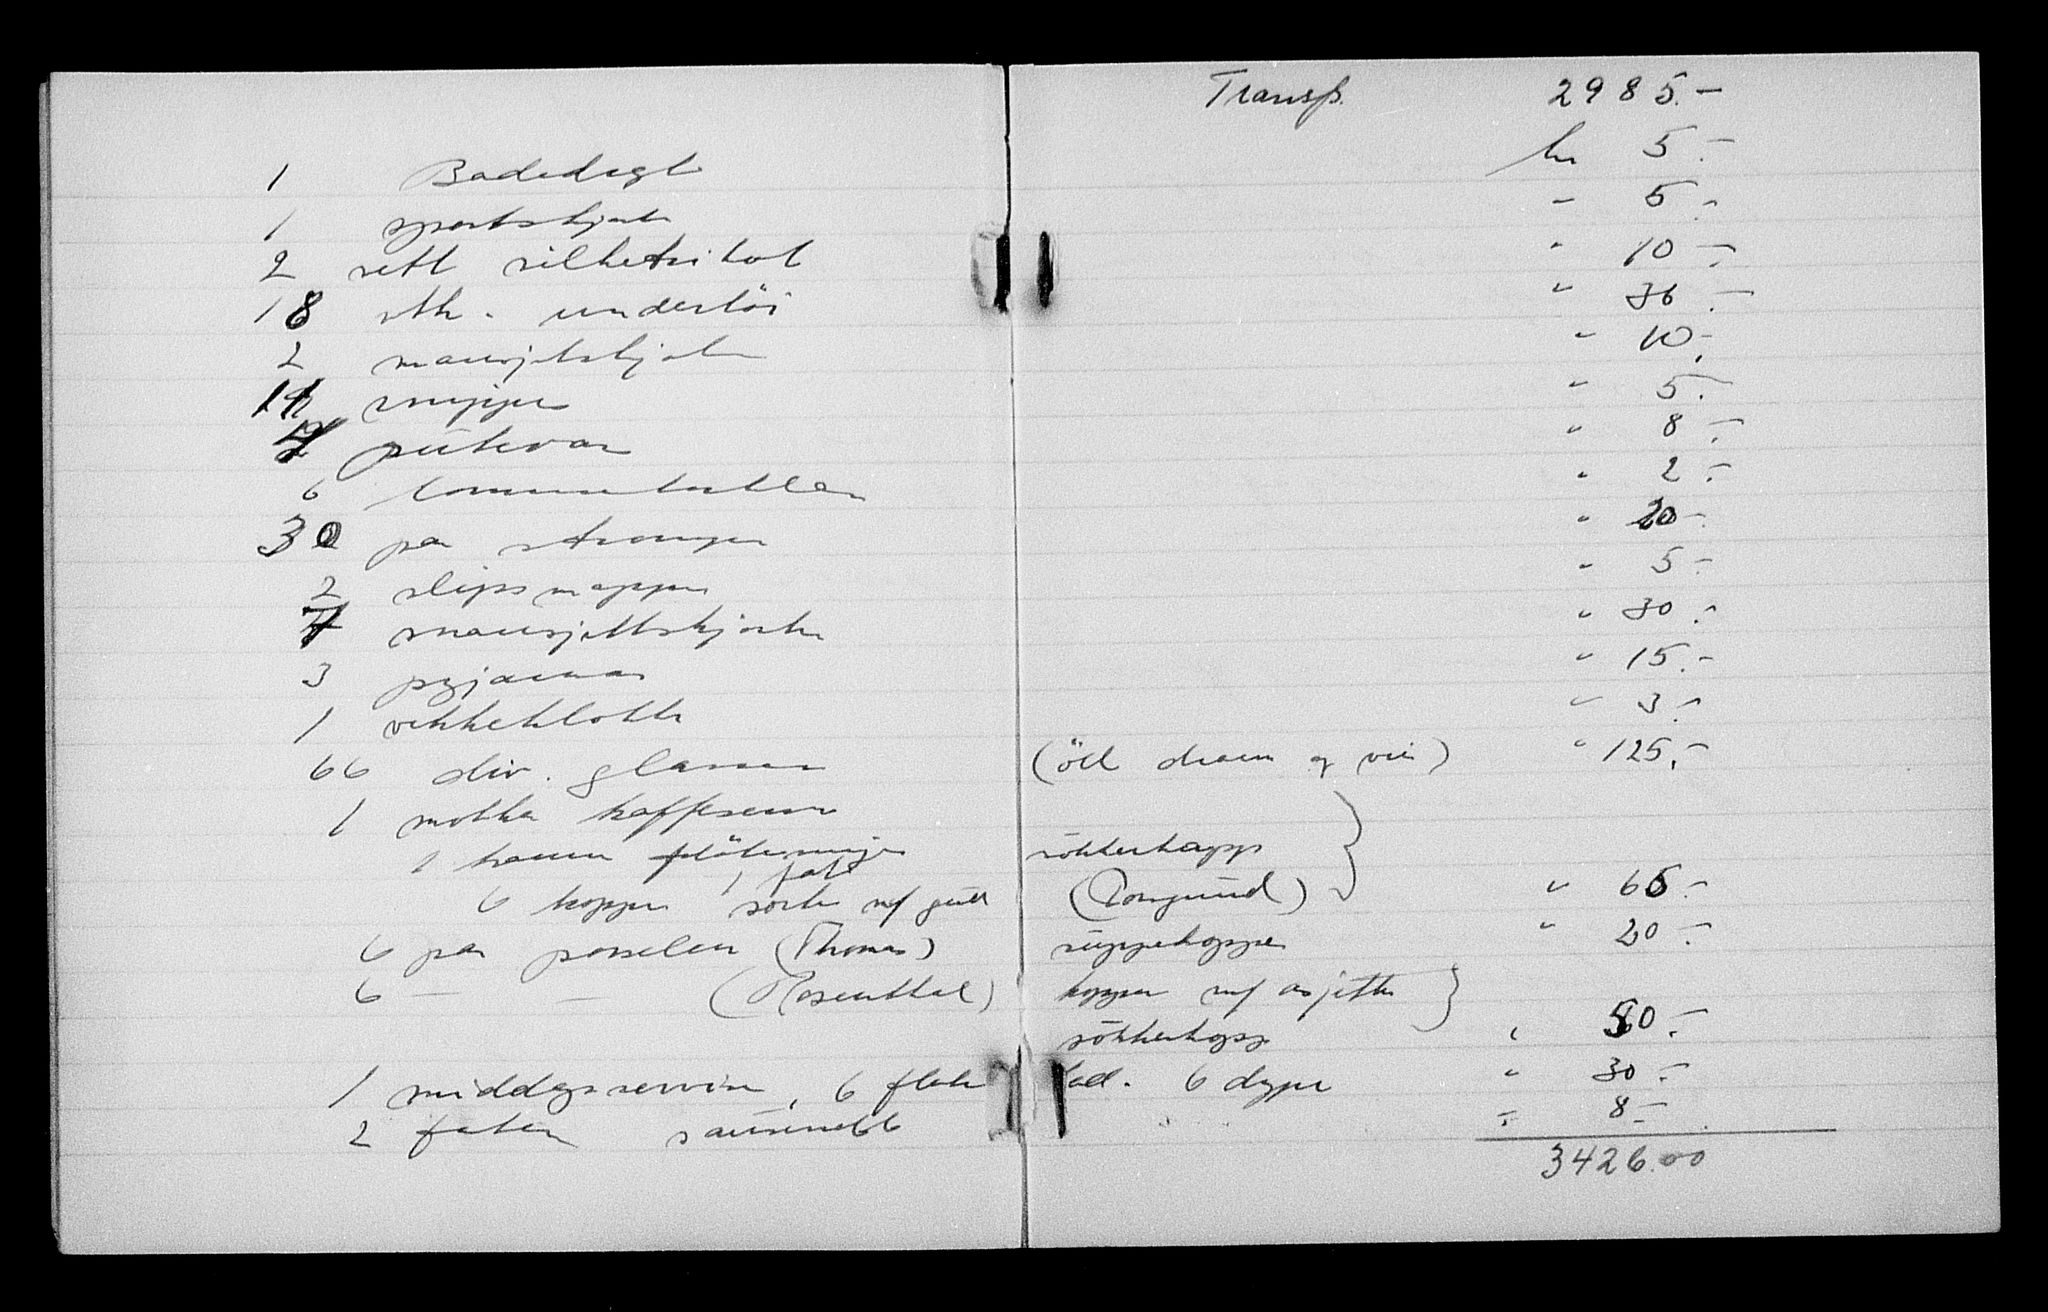 Transp. 2985.-
1 Badedrgt kr 5.-
1 sportskjorte - 5.-
2 sett silketrikot " 10.-
18 stk. undertöi " 36.-
2 mansjetskjorter " 10.-
snipper " 5.-
putevar " 8.-
6 lommetørklær " 2.-
30 par strømper " 20.-
2 slipsmapper " 5.-
7 mansjettskjorter " 30.-
3 pyjamas " 15.-
1 vekkeklokke " 3.-
66 div. glasser (öll dram og vin) " 125.-
1 mokka kaffeservise
1 kanne flötemugge sökkerkopp
1 fat
6 kopper sorte m/ gull (Porsgrund) " 65.-
6 par porselen (Thomas) suppekopper " 20.-
6 - - (Rosenthal) kopper m/ asjetter
sökkerkopp " 50.-
1 middagsservise, 6 flate tall. 6 dype " 30.-
2 faten sausenebb " 8.-
3426.00